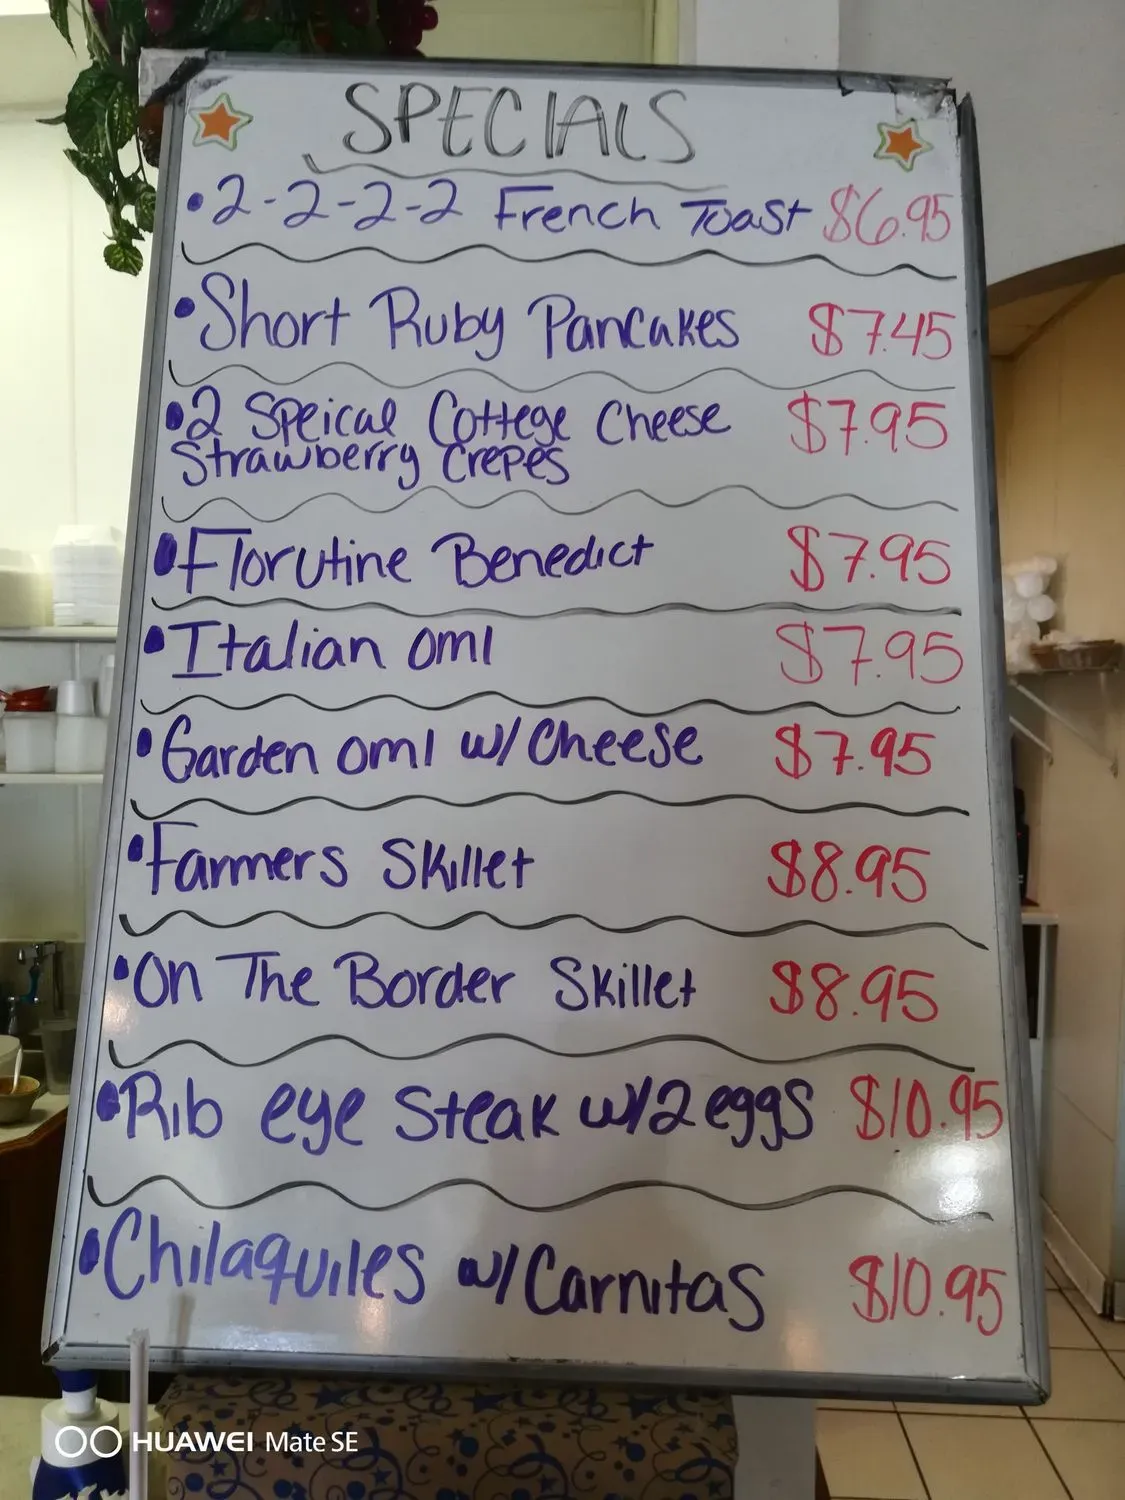 SPECIALS
• 2-2-2-2 French Toast $6.95
• Short Ruby Pancakes $7.45
• 2 Speical Cottege Cheese $7.95
Strawberry Crepes
• Florutine Benedict $7.95
• Italian oml $7.95
• Garden oml w/ Cheese $7.95
• Farmers Skillet $8.95
• On The Border Skillet $8.95
• Rib eye Steak w/2 eggs $10.95
• Chilaquiles w/ Carnitas $10.95
HUAWEI Mate SE